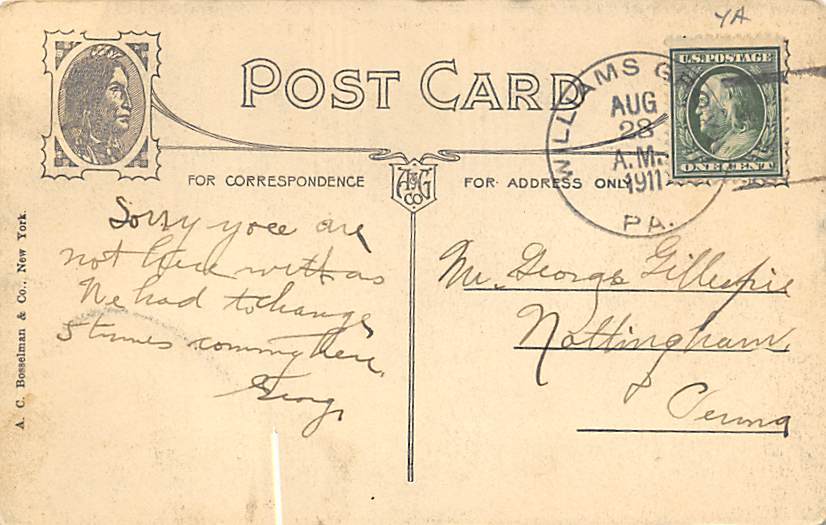 YA
POST CARD
U.S. POSTAGE
ONE CENT
WILLIAMS G
AUG
28
A.M.
1911
PA.
FOR CORRESPONDENCE
A&G
CO
FOR ADDRESS ONLY
A. C. Bosselman & Co., New York.
Sorry you are
not here with us
We had to change
5 times coming here.
Georg
Mr. George Gillespie
Nottingham,
Penna